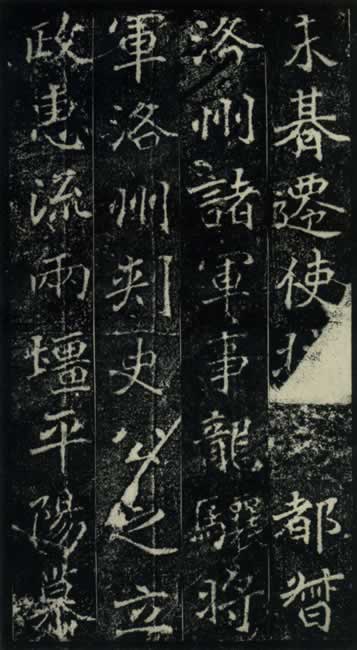 未朞遷使都督
洛州諸軍事龍驤將
軍洛州刾史公之立
政惠流兩壃平陽慕